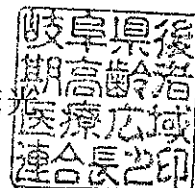 岐阜県後
期高齢者
医療広域
連合長之印